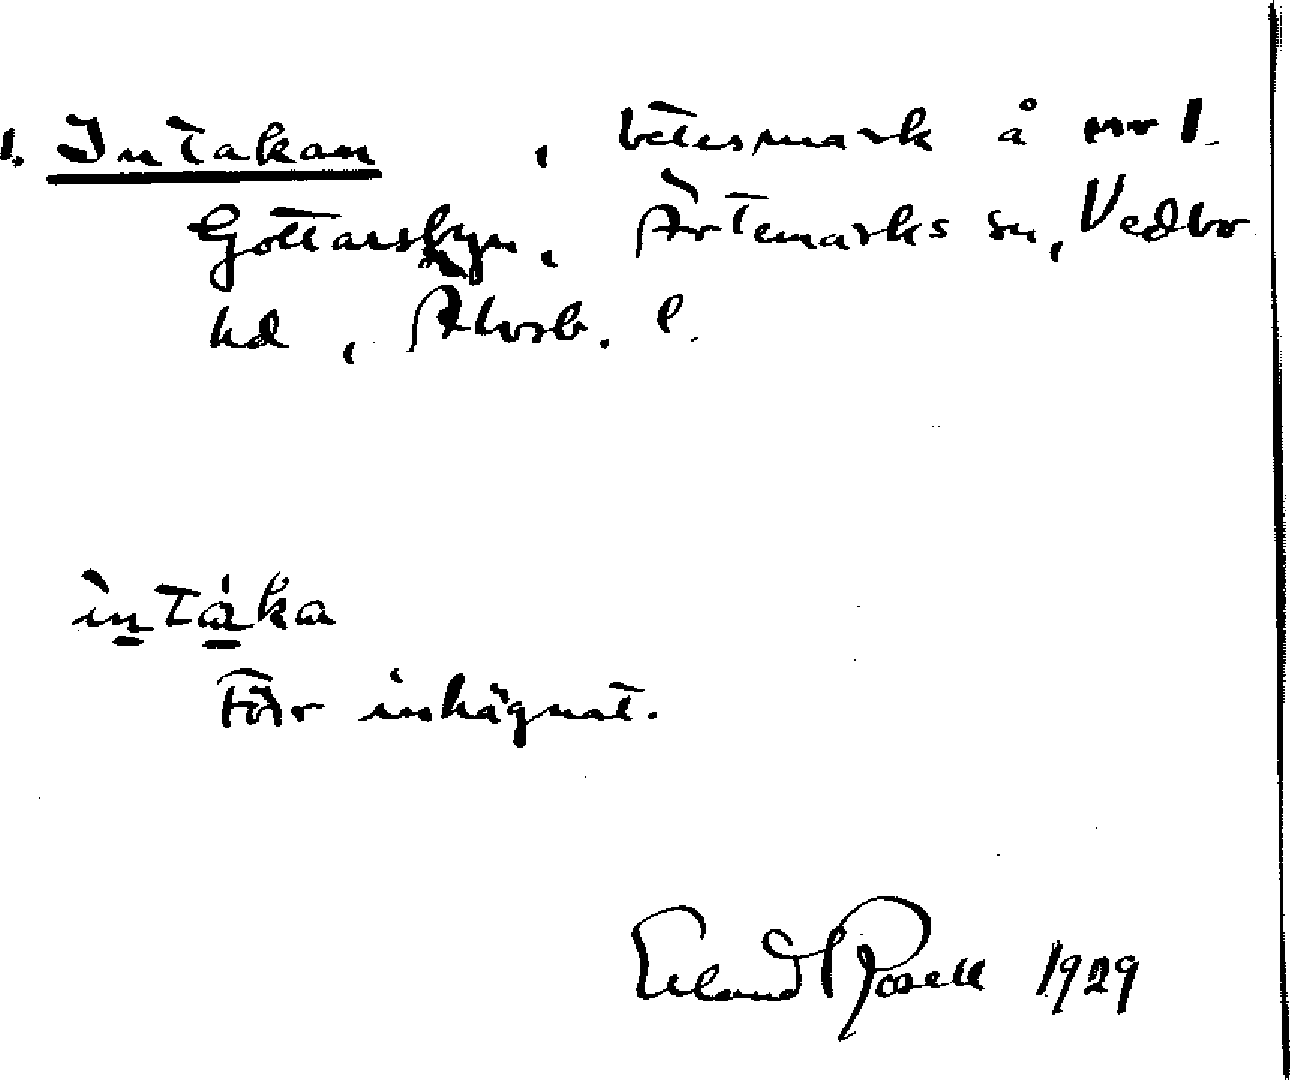 1. Intakan , betesmark å nr 1.
Gottarsbyn, Ärtemarks sn, Vedbo
hd , Älvsb. l.
ìntáka
Förr inhägnat.
Erland Rosell 1929